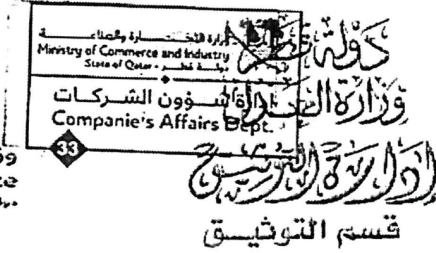 وزارة التجارة والصناعة
Ministry of Commerce and Industry
دولة قطر - State of Qatar
إدارة شؤون الشركات
Companie's Affairs Dept.
33
دولة قطر
وزارة العدل
إدارة التوثيق
قسم التوثيـــق